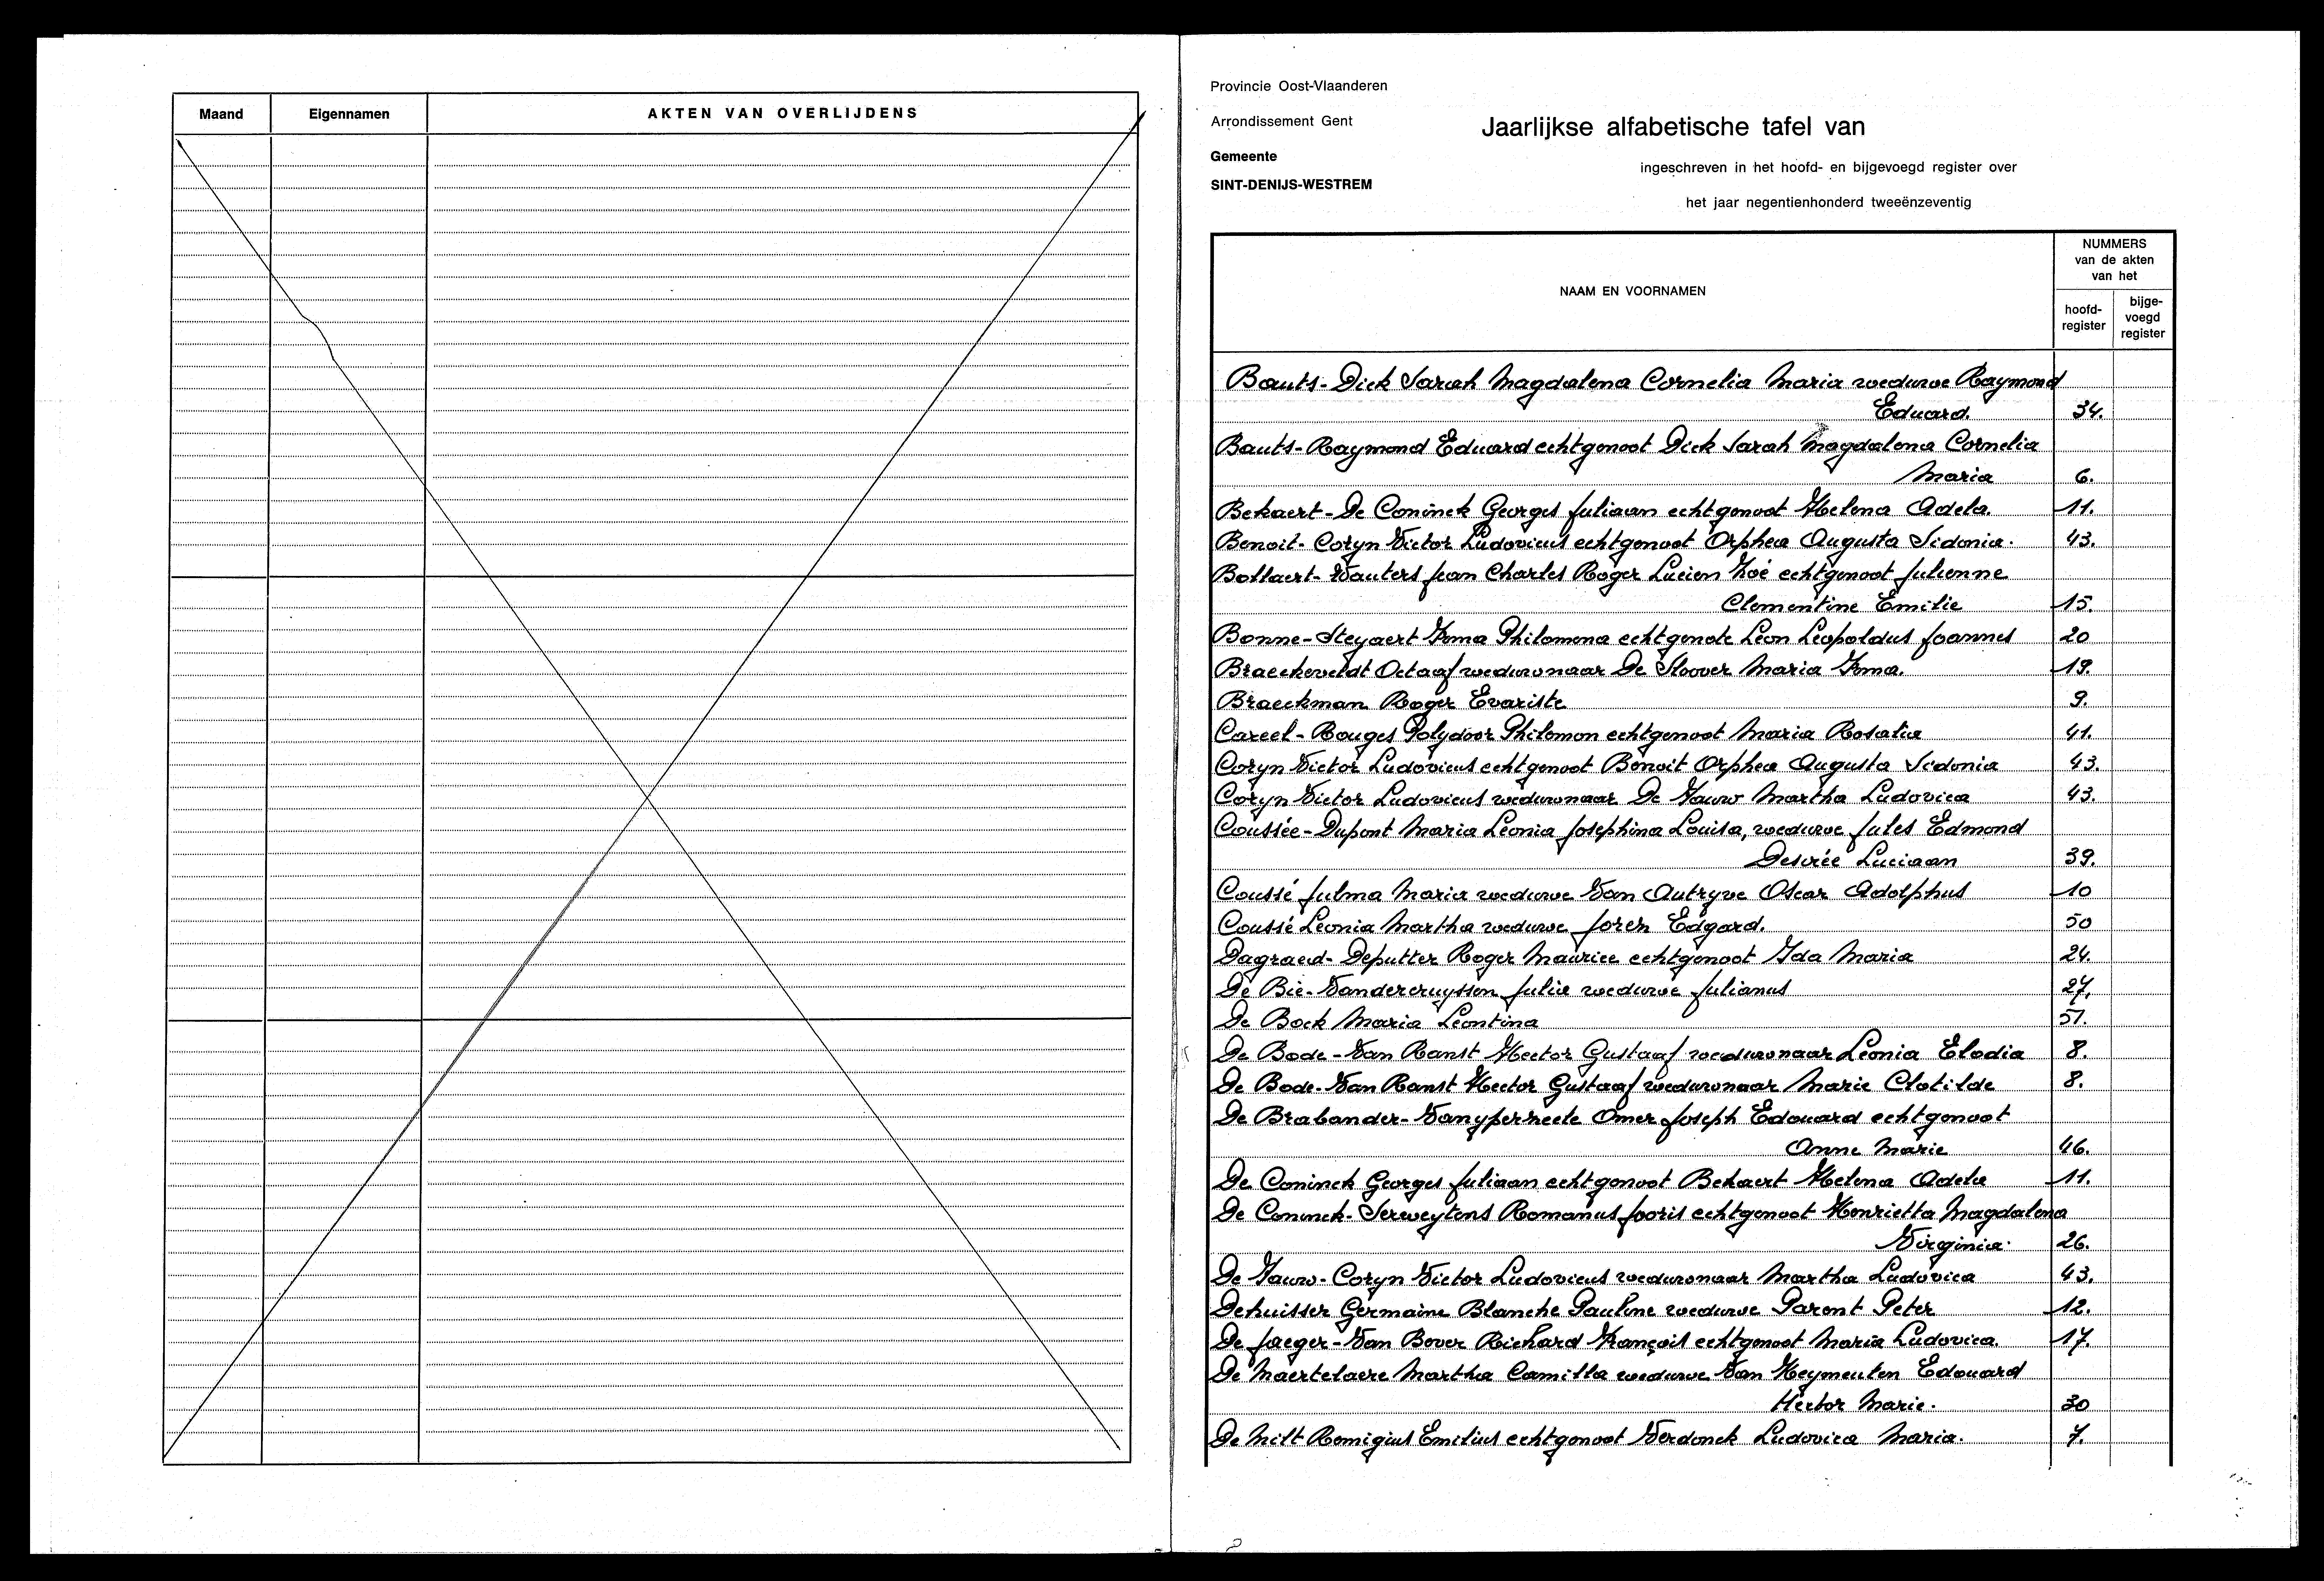 Maand Eigennamen AKTEN VAN OVERLIJDENS
Provincie Oost-Vlaanderen
Arrondissement Gent
Gemeente
SINT-DENIJS-WESTREM
Jaarlijkse alfabetische tafel van
ingeschreven in het hoofd- en bijgevoegd register over
het jaar negentienhonderd tweeënzeventig
NAAM EN VOORNAMEN
NUMMERS
van de akten
van het
hoofd-
register
bijge-
voegd
register
Bauts-Dick Sarah Magdalena Cornelia Maria weduwe Raymond
Eduard. 34.
Bauts-Raymond Eduard echtgenoot Dick Sarah Magdalena Cornelia
Maria 6.
Bekaert-De Coninck Georges Juliaan echtgenoot Helena Adela. 11.
Benoit-Coryn Victor Ludovicus echtgenoot Orphea Augusta Sidonia. 43.
Bollaert-Wauters Jean Charles Roger Lucien Zoé echtgenoot Julienne
Clementine Emilie 15.
Bonne-Steyaert Irma Philomena echtgenote Leon Leopoldus Joannes 20
Braeckeveldt Octaaf weduwnaar De Sloover Maria Irma. 19.
Braeckman Roger Evariste 9.
Careel-Rouges Polydoor Philemon echtgenoot Maria Rosalia 41.
Coryn Victor Ludovicus echtgenoot Benoit Orphea Augusta Sidonia 43.
Coryn Victor Ludovicus weduwnaar De Gauw Martha Ludovica 43.
Coussée-Dupont Maria Leonia Josephina Louisa, weduwe Jules Edmond
Desirée Luciaan 39.
Coussé Julma Maria weduwe Van Autryve Oscar Adolphus 10
Coussé Leonia Martha weduwe Joren Edgard. 50
Dagraed-Deputter Roger Maurice echtgenoot Ida Maria 24.
De Bie-Vandercruyssen Julia weduwe Julianus 27.
De Bock Maria Leontina 51.
De Bode-Van Ranst Hector Gustaaf weduwnaar Leonia Elodia 8.
De Bode-Van Ranst Hector Gustaaf weduwnaar Marie Clotilde 8.
De Brabander-Vanyperzeele Omer Joseph Edouard echtgenoot
Anne Marie 46.
De Coninck Georges Juliaan echtgenoot Bekaert Helena Adela 11.
De Coninck-Serweytens Romanus Jooris echtgenoot Henrietta Magdalena
Virginia. 26.
De Gauw-Coryn Victor Ludovicus weduwnaar Martha Ludovica 43.
Dehuisser Germaine Blanche Pauline weduwe Parent Peter 12.
De Jaeger-Van Bever Richard François echtgenoot Maria Ludovica. 17.
De Maertelaere Martha Camilla weduwe Van Heymeulen Edouard
Hector Marie. 30
De Milt Remigius Emilius echtgenoot Verdonck Ludovica Maria. 7.